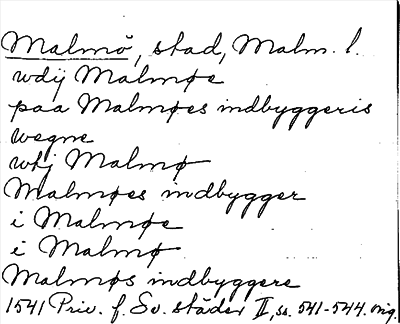 Malmö, stad, Malm. l.
wdij Malmøe
paa Malmøes indbyggeris
wegne
whj Malmø
Malmøes indbygger
i Malmøe
i Malmø
Malmøs indbyggere
1541 Priv. f. Sv. städer II, ss. 541-544. orig.